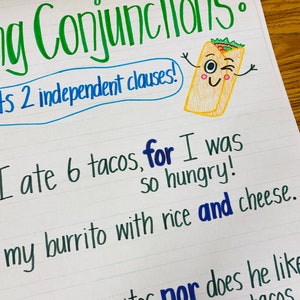 ng Conjunctions:
ts 2 independent clauses!
I ate 6 tacos, for I was
so hungry!
my burrito with rice and cheese.
nor does he like
tacos